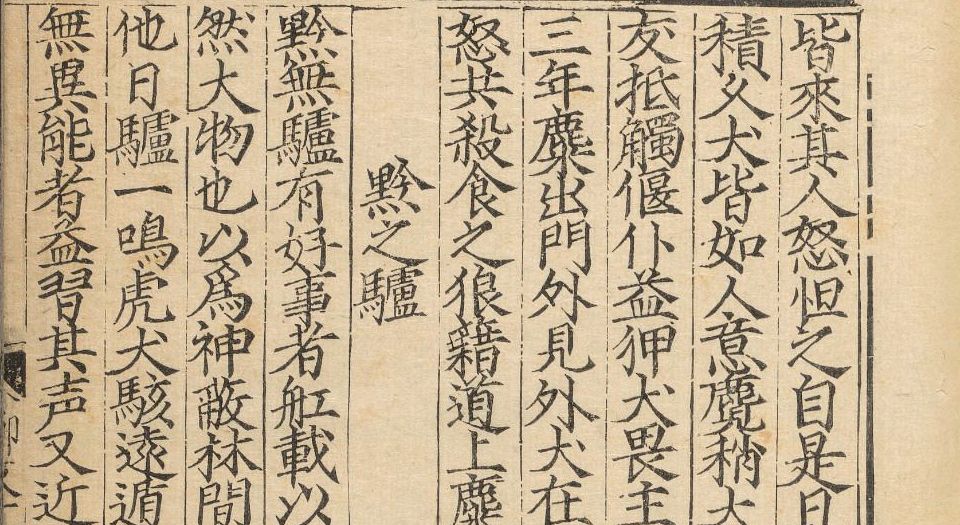 皆來其人怒怛之自是日
積乆犬皆如人意麑稍大
友抵觸偃仆益狎犬畏主
三年麋出門外見外犬在
怒共殺食之狼籍道上麋
黔之驢
黔無驢有好事者舡載以
然大物也以爲神蔽林間
他日驢一鳴虎犬駭遠遁
無異能者益習其声又近